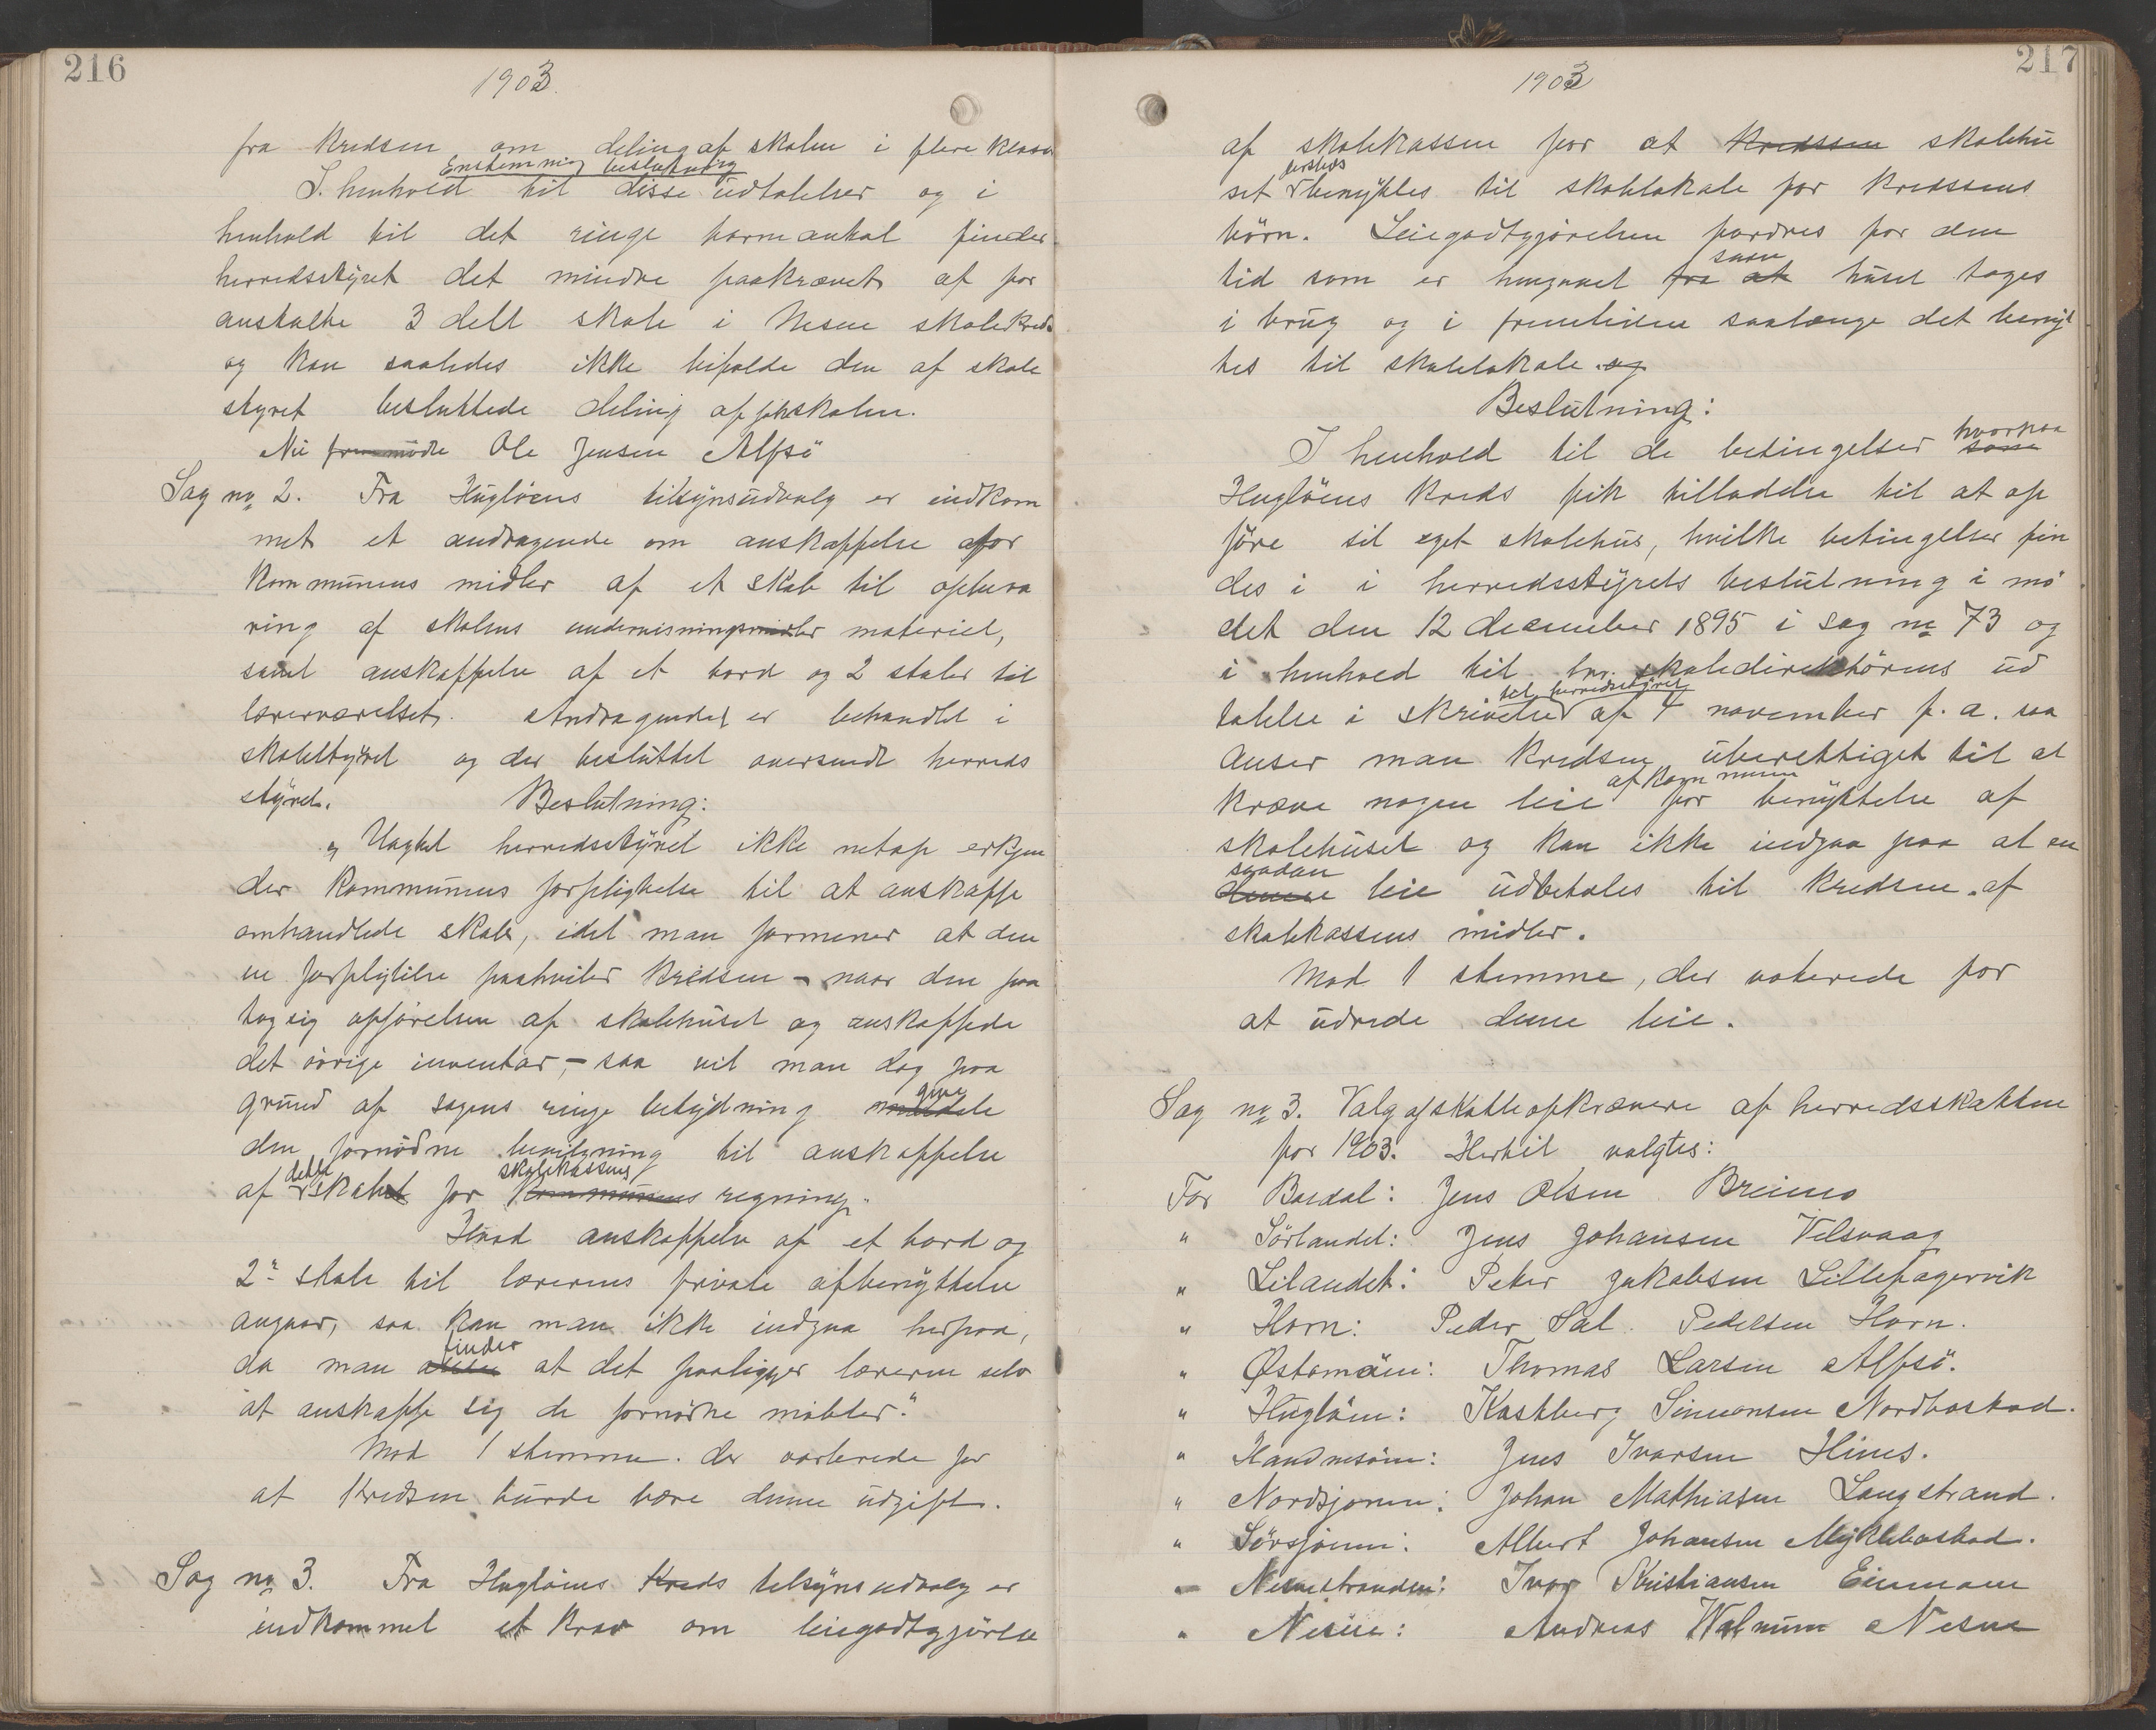 216
1903
fra kredsen om deling af skolen i flere klasser
Enstemmig beslutning
I henhold til disse udtalelser og i
henhold til det ringe barneantal finder
herredsstyret det mindre paakrævet at for
anstalte 3 delt skole i Nesne skolekreds
og kan saaledes ikke bifalde den af skole
styret besluttede deling af skolen.
Nu fremmødte Ole Jensen Alfsö
Sag no 2. Fra Hugløens tilsynsudvalg er indkom
met et andragende om anskaffelse for
kommunens midler af et skab til opbeva
ring af skolens undervisningsmidler materiel,
samt anskaffelse af et bord og 2 stoler til
lærerværelset. Andragendet er behandlet i
skolestyret og der besluttet oversendt herreds
styret. Beslutning:
„ Uagtet herredsstyret ikke netop erkjen
der kommunens forpligtelse til at anskaffe
omhandlede skab, idet man formener at den
ne forpligtelse paahviler kredsen – naar den paa
tog sig opførelsen af skolehuset og anskaffede
det øvrige inventar, – saa vil man dog paa
grund af sagens ringe betydning meddele give
den fornødne bevilgning til anskaffelse
af dette skabet for kommunens skolekassens regning.
Hvad anskaffelse af et bord og
2 stole til lærerens private afbenyttelse
angaar, saa kan man ikke indgaa herpaa,
da man finder at det paaligger læreren selv
at anskaffe sig de fornødne møbler."
Mod 1 stemme. der voterede for
at kredsen burde bære denne udgift.
Sag no 3. Fra Hugløens kreds tilsynsudvalg er
indkommet et krav om leiegodtgjørelse
217
1903
af skolekassen for at kredssen skolehu
set dersteds benyttes til skolelokale for kredsens
börn. Leiegodtgjørelsen fordres for den
tid som er hengaaet fra at huset toges
i brug og i fremtiden saalænge det benyt
tes til skolelokale. og
Beslutning:
I henhold til de betingelser som hvorpaa
Hugløens kreds fik tilladelse til at op
føre sit eget skolehus, hvilke betingelser fin
des i i herredsstyrets beslutning i mö
det den 12 december 1895 i sag no 73 og
i henhold til hr. skoledirektörens ud
talelse i skrivelse til herredsstyret af 4 november f. a. saa
anser man kredsen uberettiget til at
kræve nogen leie af kommunen for benyttelse af
skolehuset og kan ikke indgaa paa at en
denne saadan leie udbetales til kredsen af
skolekassens midler.
Mod 1 stemme, der voterede for
at udrede denne leie.
Sag no 3. Valg af skatteopkrævere af herredsskatten
for 1903. Hertil valgtes:
For Bardal: Jens Olsen Breimo
" Sörlandet: Jens Johansen Velsvaag
" Leilandet: Peter Jakobsen Lillefagervik
" Horn: Peder Sal. Pedersen Horn.
" Østomöen: Thomas Larsen Alfsö.
" Huglöen: Kastberg Simonsen Nordbostad.
" Handnesöen: Jens Ivarsen Hines.
" Nordsjonen: Johan Mathiasen Langstrand.
" Sörsjonen: Albert Johansen Myklebostad.
" Nesnestranden: Ivar Kristiansen Einmoen
" Nesne: Andreas Walnum Nesne